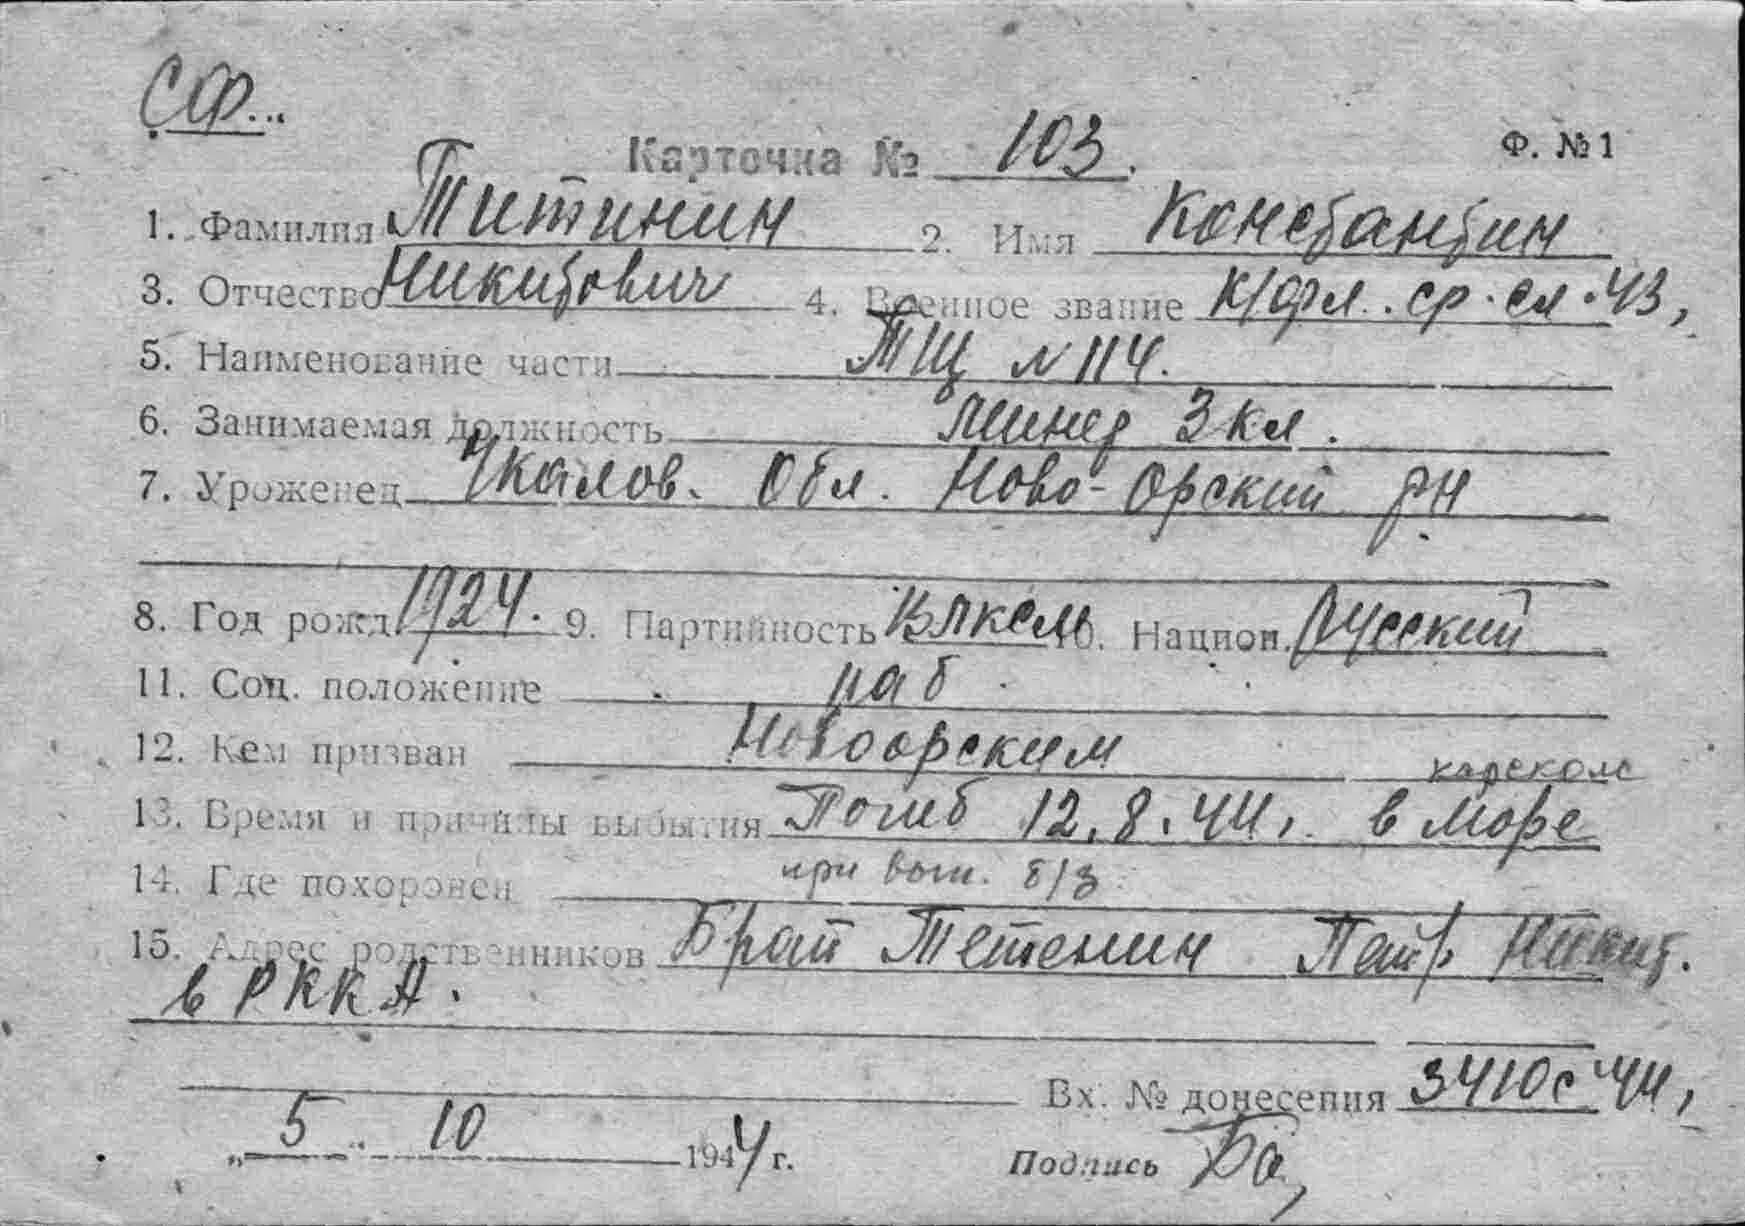 СФ...
Карточка № 103. Ф. №1
1. Фамилия Титинин 2. Имя Константин
3. Отчество Никитович 4. Военное звание к/фл. ср. сл. 43,
5. Наименование части ТЩ № 114.
6. Занимаемая должность минер 3 кл.
7. Уроженец Чкалов. Обл. Ново-Орский рн
8. Год рожд. 1924. 9. Партийность ВЛКСМ 10. Национ. Русский
11. Соц. положение раб
12. Кем призван Новоорским
карском
13. Время и причины выбытия Погиб 12.8.44, в море
14. Где похоронен при вып. б/з
15. Адрес родственников Брат Тетенин Петр Никит.
в РККА.
Вх. № донесения 3410с 44,
„ 5 " 10 1944 г.
Подпись